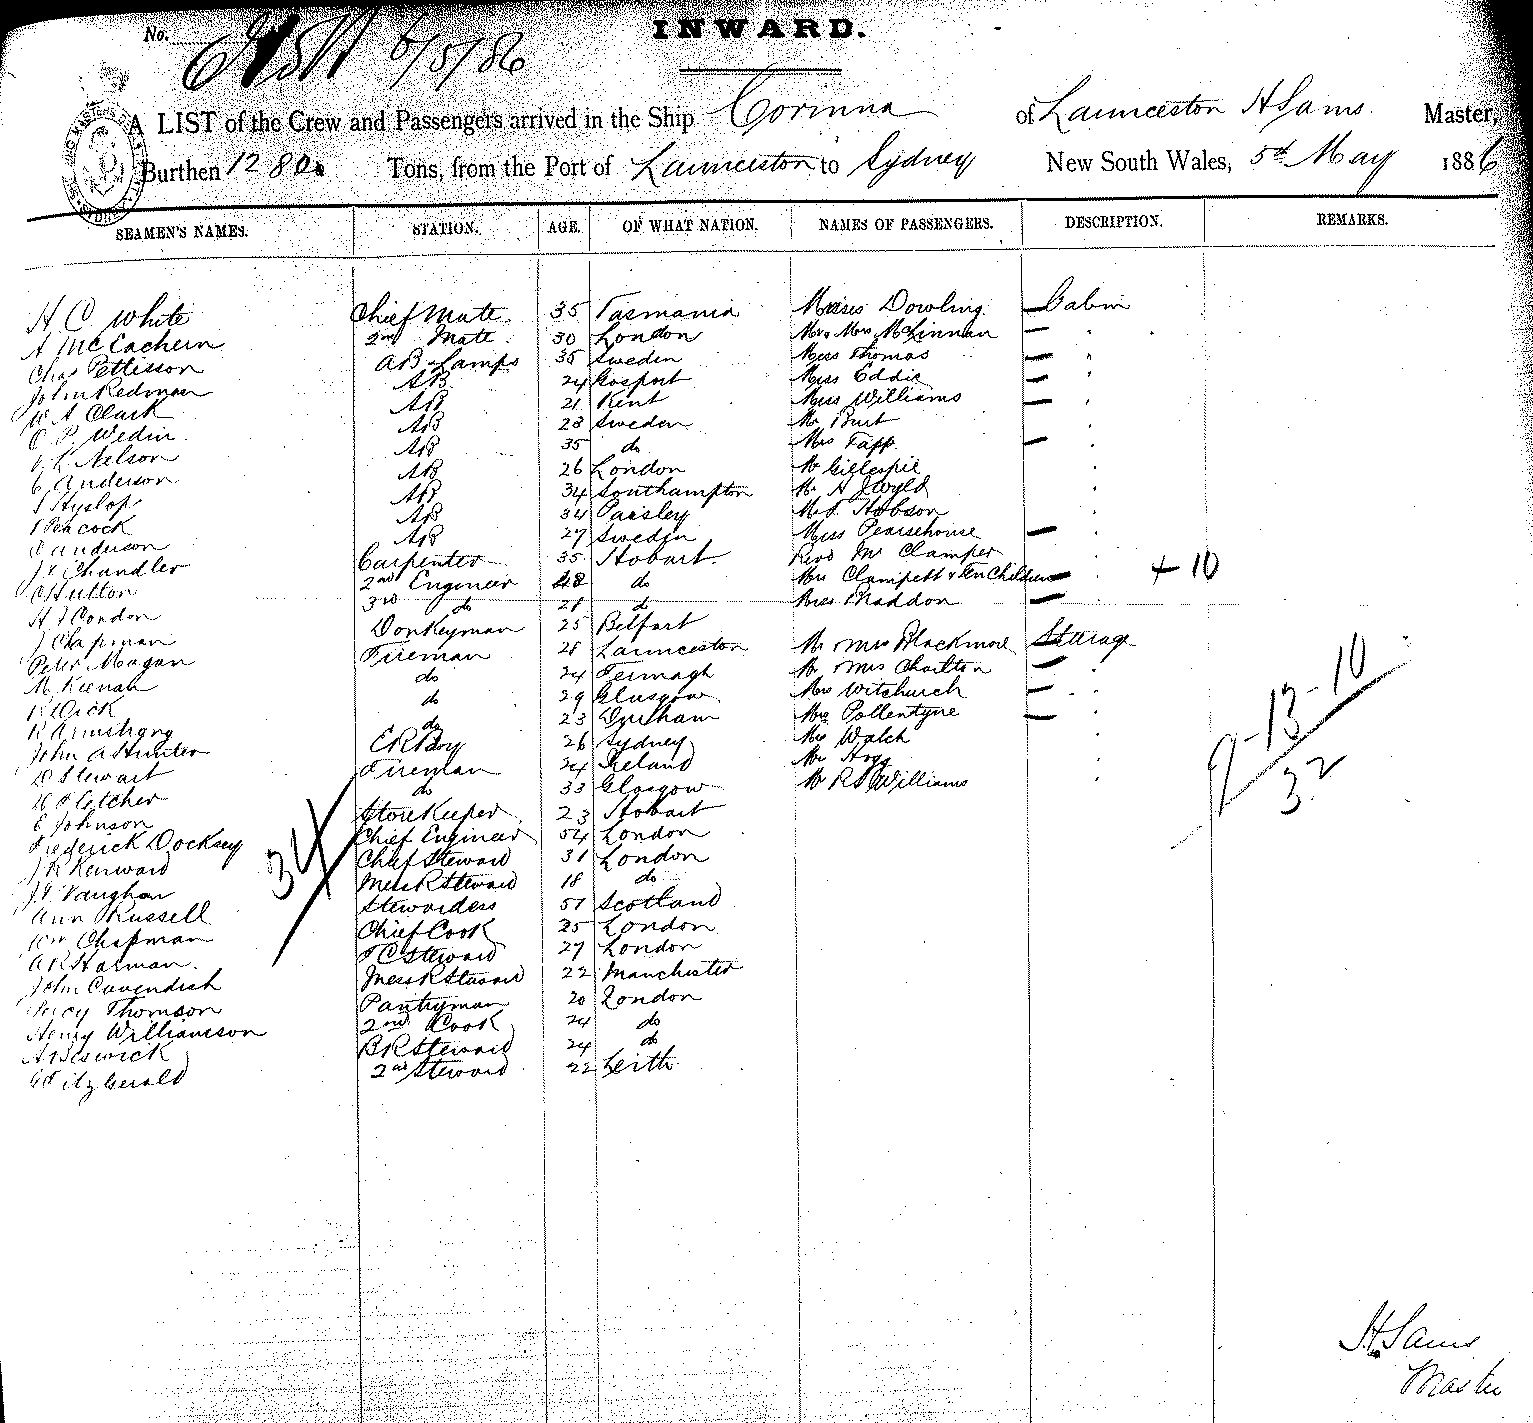 No. 6/5/86
INWARD.
A LIST of the Crew and Passengers arrived in the Ship Corinna of Launceston H Sams. Master,
Burthen 1280 Tons, from the Port of Launceston to Sydney New South Wales, 5th May 1886
SEAMEN'S NAMES. STATION. AGE. OF WHAT NATION. NAMES OF PASSENGERS. DESCRIPTION. REMARKS.
H C White Chief Mate 35 Tasmania Misses Dowling Cabin
A McEachern 2nd Mate 30 London Mr & Mrs McKinnan
Chas Pettisson AB & Lamps 35 Sweden Miss Thomas
John Redman AB 24 Gosport Miss Eddie
W A Clark AB 21 Kent Miss Williams
O P Wedin AB 23 Sweden Mr Burt
Nelson AB 35 do Mrs Tapp
C Anderson AB 26 London Mr Gillespie
Hyslop AB 34 Southampton Mr A J Wyld
Peacock AB 34 Paisley Hobson
Anderson AB 27 Sweden Miss Pearsehouse
Chandler Carpenter 35 Hobart Revd Mr Clamper
C Hutton 2nd Engineer 42 do Mrs Clampett & Ten Children + 10
H J Condon 3rd do 28 do Maddon
J Chapman Donkeyman 25 Belfast
Peter Morgan Fireman 28 Launceston Mr & Mrs Blackmore Steerage
M Keenan do 24 Fermagh Mr & Mrs Charlton
R Dick do 29 Glasgow Mrs Witchurch
R Armstrong do 23 Durham Mrs Pollentyne
John A Hunter E R Boy 26 Sydney Walch
D Stewart Fireman 24 Ireland Mr Hogg
Fletcher do 33 Glasgow Mr R S Williams
E Johnson Store Keeper 23 Hobart
Frederick Docksey Chief Engineer 54 London
J R Kenward Chief Steward 31 London
Vaughan Mess R Steward 18 do
Ann Russell Stewardess 51 Scotland
Wm Chapman Chief Cook 25 London
A R Harman F C Steward 27 London
John Cavendish Mess R Steward 22 Manchester
Percy Thomson Pantryman 20 London
Henry Williamson 2nd Cook 24 do
A Beswick B R Steward 24 do
FitzGerald 2nd Steward 22 Leith
34
9-13-10
32
H. Sams
Master